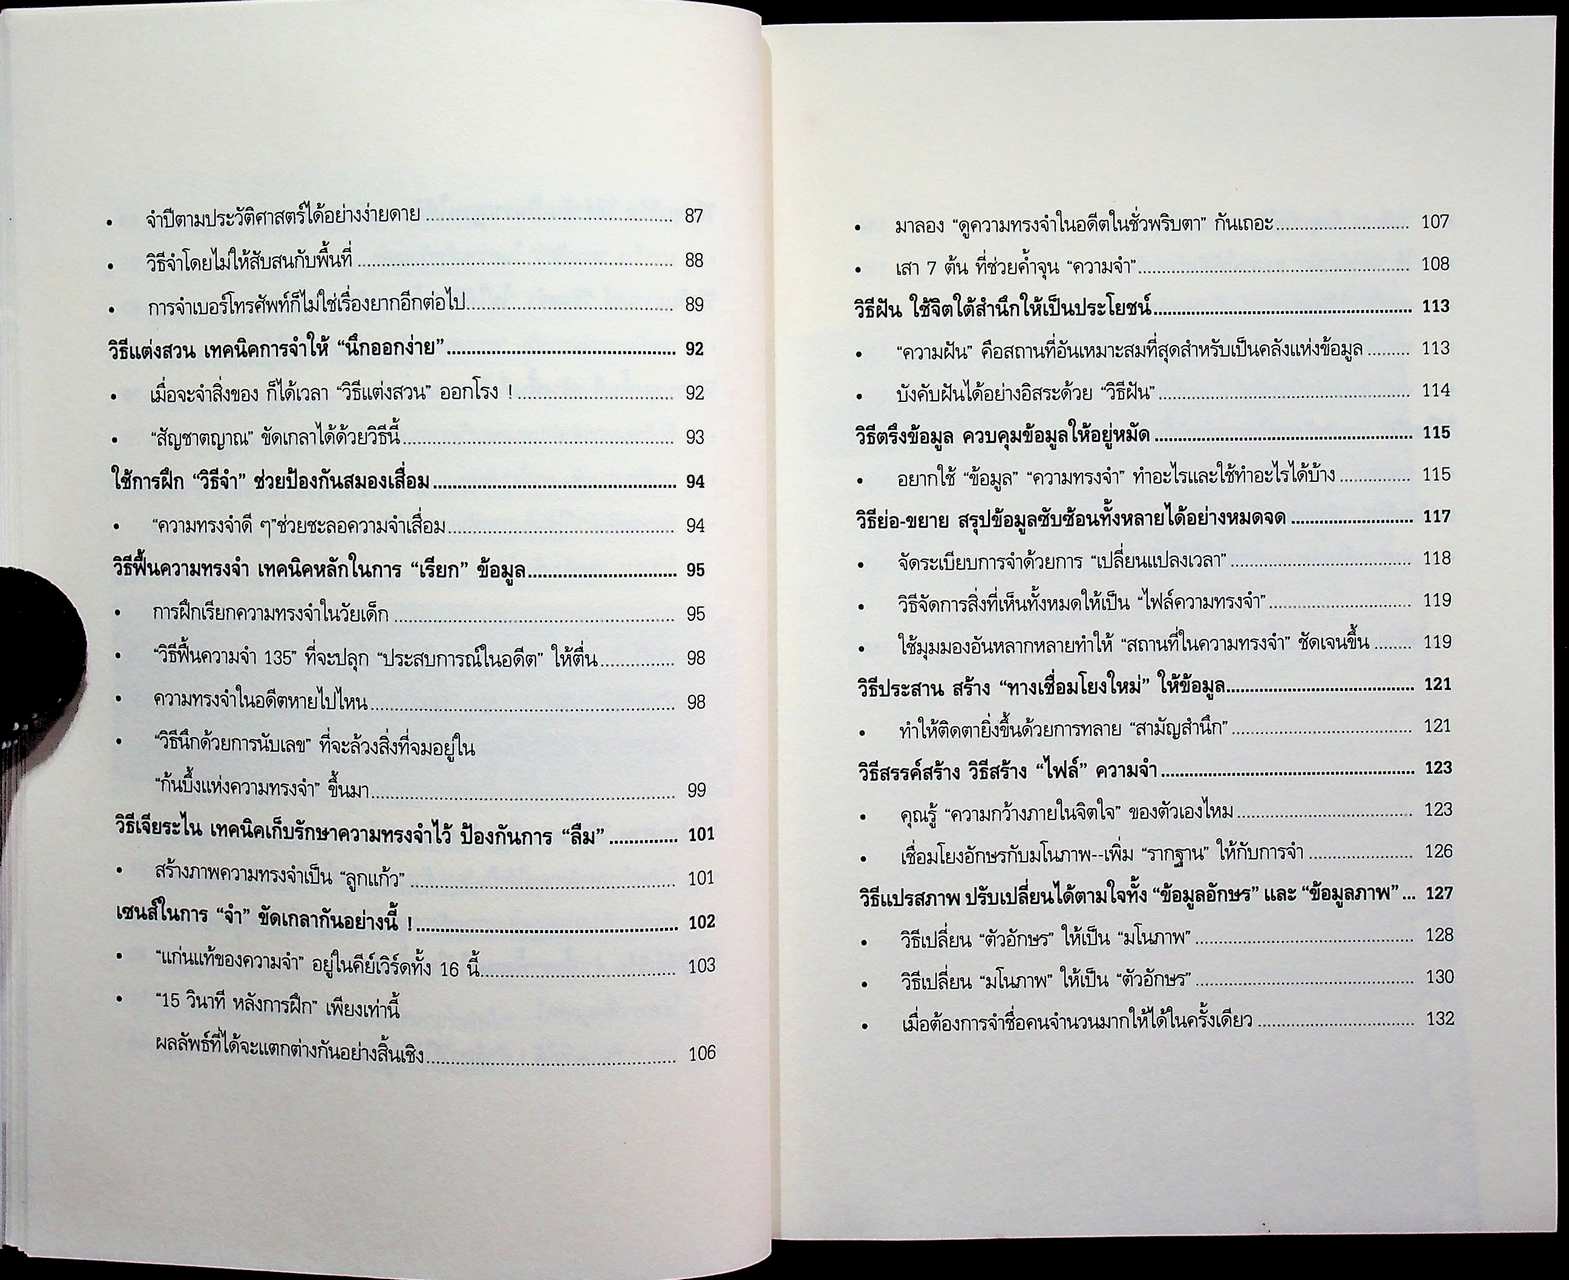 • จำปีตามประวัติศาสตร์ได้อย่างง่ายดาย ........ 87
• วิธีจำโดยไม่ให้สับสนกับพื้นที่ ........ 88
• การจำเบอร์โทรศัพท์ก็ไม่ใช่เรื่องยากอีกต่อไป ........ 89
วิธีแต่งสวน เทคนิคการจำให้ “นึกออกง่าย” ........ 92
• เมื่อจะจำสิ่งของ ก็ได้เวลา “วิธีแต่งสวน” ออกโรง ! ........ 92
• “สัญชาตญาณ” ขัดเกลาได้ด้วยวิธีนี้ ........ 93
ใช้การฝึก “วิธีจำ” ช่วยป้องกันสมองเสื่อม ........ 94
• “ความทรงจำดี ๆ”ช่วยชะลอความจำเสื่อม ........ 94
วิธีฟื้นความทรงจำ เทคนิคหลักในการ “เรียก” ข้อมูล ........ 95
• การฝึกเรียกความทรงจำในวัยเด็ก ........ 95
• “วิธีฟื้นความจำ 135” ที่จะปลุก “ประสบการณ์ในอดีต” ให้ตื่น ........ 98
• ความทรงจำในอดีตหายไปไหน ........ 98
• “วิธีนึกด้วยการนับเลข” ที่จะล้วงสิ่งที่จมอยู่ใน
“ก้นบึ้งแห่งความทรงจำ” ขึ้นมา ........ 99
วิธีเจียระไน เทคนิคเก็บรักษาความทรงจำไว้ ป้องกันการ “ลืม” ........ 101
• สร้างภาพความทรงจำเป็น “ลูกแก้ว” ........ 101
เซนส์ในการ “จำ” ขัดเกลากันอย่างนี้ ! ........ 102
• “แก่นแท้ของความจำ” อยู่ในคีย์เวิร์ดทั้ง 16 นี้ ........ 103
• “15 วินาที หลังการฝึก” เพียงเท่านี้
ผลลัพธ์ที่ได้จะแตกต่างกันอย่างสิ้นเชิง ........ 106
• มาลอง “ดูความทรงจำในอดีตในชั่วพริบตา” กันเถอะ ........ 107
• เสา 7 ต้น ที่ช่วยค้ำจุน “ความจำ” ........ 108
วิธีฝัน ใช้จิตใต้สำนึกให้เป็นประโยชน์ ........ 113
• “ความฝัน” คือสถานที่อันเหมาะสมที่สุดสำหรับเป็นคลังแห่งข้อมูล ........ 113
• บังคับฝันได้อย่างอิสระด้วย “วิธีฝัน” ........ 114
วิธีตรึงข้อมูล ควบคุมข้อมูลให้อยู่หมัด ........ 115
• อยากใช้ “ข้อมูล” “ความทรงจำ” ทำอะไรและใช้ทำอะไรได้บ้าง ........ 115
วิธีย่อ-ขยาย สรุปข้อมูลซับซ้อนทั้งหลายได้อย่างหมดจด ........ 117
• จัดระเบียบการจำด้วยการ “เปลี่ยนแปลงเวลา” ........ 118
• วิธีจัดการสิ่งที่เห็นทั้งหมดให้เป็น “ไฟล์ความทรงจำ” ........ 119
• ใช้มุมมองอันหลากหลายทำให้ “สถานที่ในความทรงจำ” ชัดเจนขึ้น ........ 119
วิธีประสาน สร้าง “ทางเชื่อมโยงใหม่” ให้ข้อมูล ........ 121
• ทำให้ติดตายิ่งขึ้นด้วยการทลาย “สามัญสำนึก” ........ 121
วิธีสรรค์สร้าง วิธีสร้าง “ไฟล์” ความจำ ........ 123
• คุณรู้ “ความกว้างภายในจิตใจ” ของตัวเองไหม ........ 123
• เชื่อมโยงอักษรกับมโนภาพ--เพิ่ม “รากฐาน” ให้กับการจำ ........ 126
วิธีแปรสภาพ ปรับเปลี่ยนได้ตามใจทั้ง “ข้อมูลอักษร” และ “ข้อมูลภาพ” ... 127
• วิธีเปลี่ยน “ตัวอักษร” ให้เป็น “มโนภาพ” ........ 128
• วิธีเปลี่ยน “มโนภาพ” ให้เป็น “ตัวอักษร” ........ 130
• เมื่อต้องการจำชื่อคนจำนวนมากให้ได้ในครั้งเดียว ........ 132